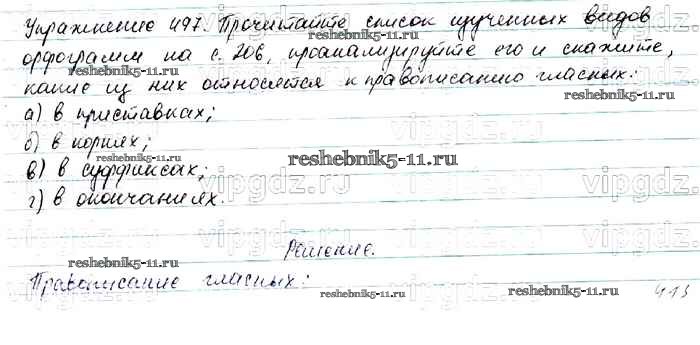 Упражнение 497. Прочитайте список изученных видов
орфограмм на с. 206, проанализируйте его и скажите,
какие из них относятся к правописанию гласных:
reshebnik5-11.ru
а) в приставках;
vipgdz.ru vipgdz.ru vipgdz.ru
б) в корнях;
reshebnik5-11.ru
в) в суффиксах;
vipgdz.ru vipgdz.ru vipgdz.ru
г) в окончаниях.
Решение.
vipgdz.ru vipgdz.ru vipgdz.ru
reshebnik5-11.ru
Правописание гласных:
reshebnik5-11.ru reshebnik5-11.ru
413